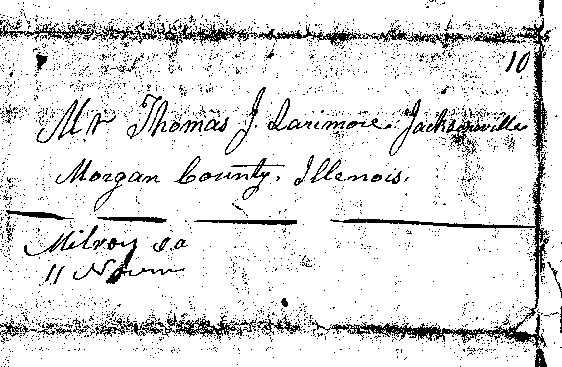 10
Mr Thomas J. Larimore. Jacksonville
Morgan County. Illenois.
Milroy Ia
11 Novm